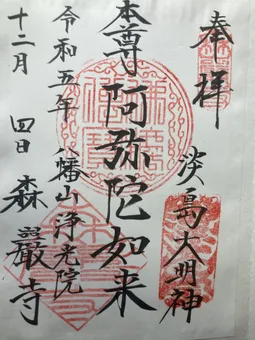 奉拝
淡島大明神
本尊 阿弥陀如来
八幡山浄光院
森巖寺
令和五年
十二月 四日